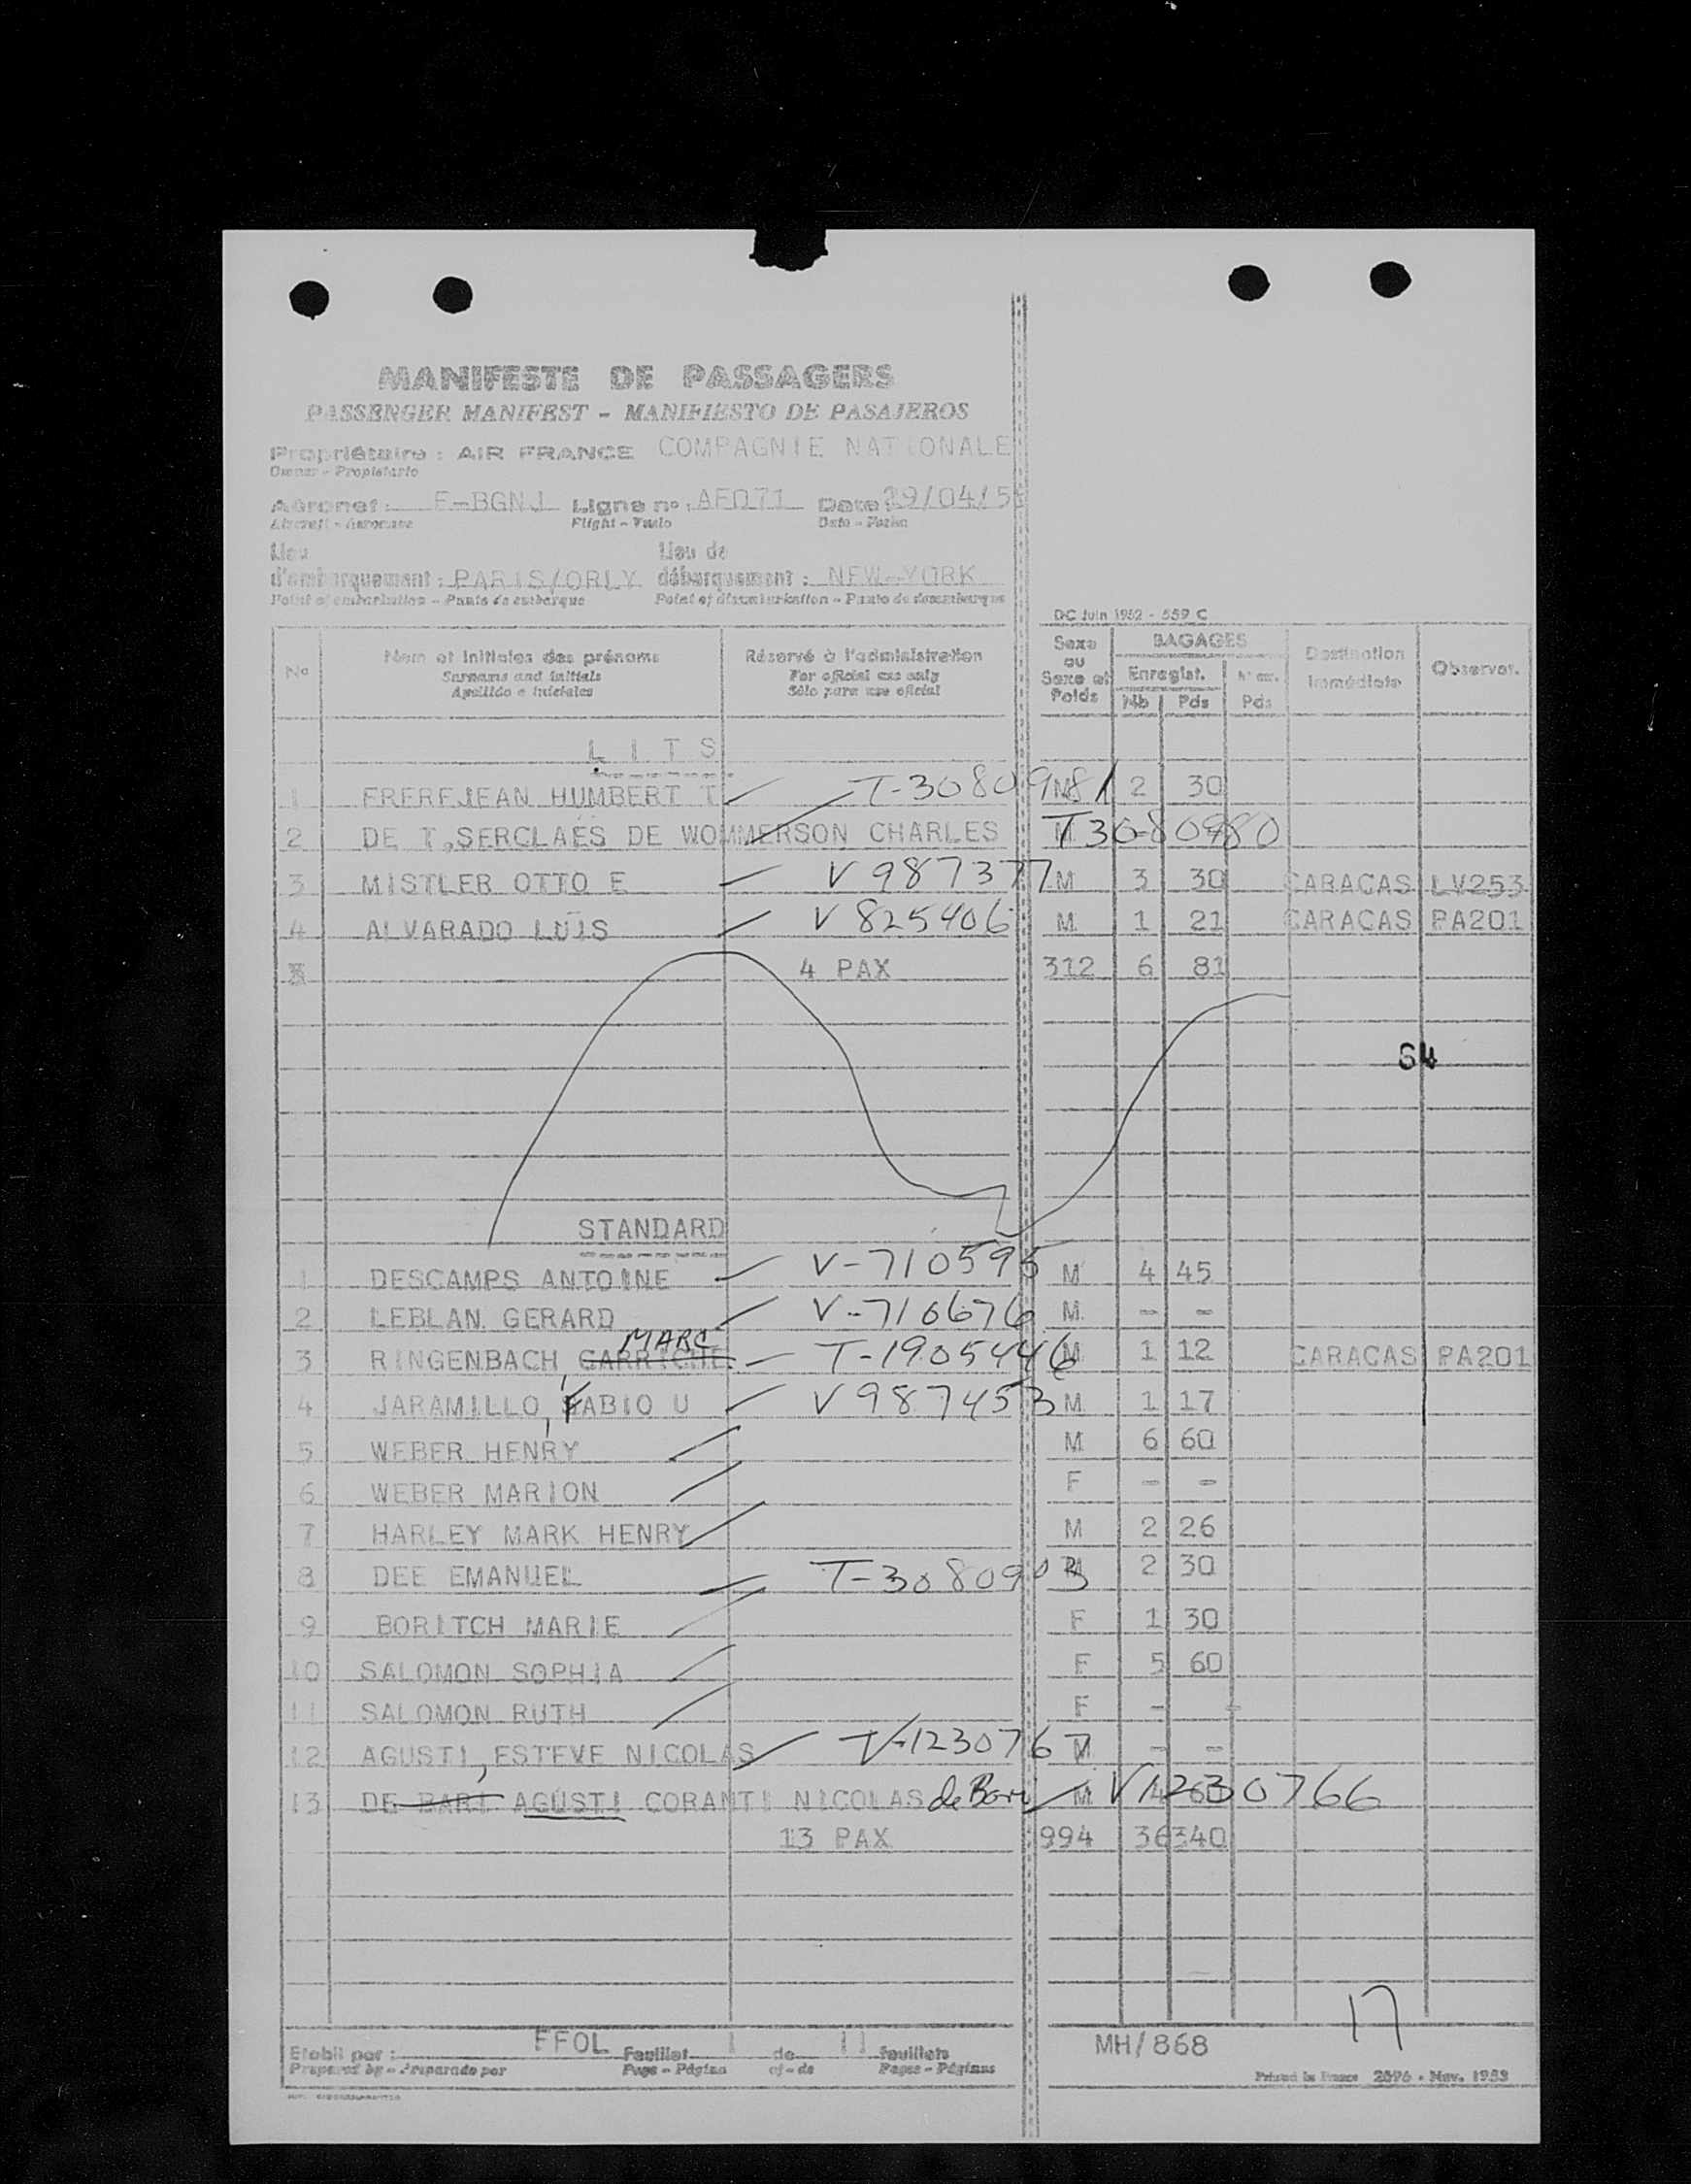 MANIFESTE DE PASSAGERS
PASSENGER MANIFEST - MANIFIESTO DE PASAJEROS
Propriétaire : AIR FRANCE COMPAGNIE NATIONALE
Owner - Propietario
Aéronef : F-BGNJ Ligne no : AF071 Date : 29/04/5
Aircraft - Aeronave Flight - Vuelo Date - Fecha
Lieu Lieu de
d'embarquement : PARIS/ORLY débarquement : NEW-YORK
Point of embarkation - Punto de embarque Point of disembarkation - Punto de desembarque
DC Juin 1952 - 559 C
No Nom et initiales des prénoms Réservé à l'administration Sexe ou Sexe et Poids BAGAGES Destination immédiate Observat.
Surnams and initials For official use only Enregist.
Apellido e iniciales Sólo para uso oficial Nb Pds Pds
LITS
1 FREREJEAN HUMBERT T T-3080981 M 2 30
2 DE T,SERCLAES DE WOMMERSON CHARLES T30-80980
3 MISTLER OTTO E V 987377 M 3 30 CARACAS LV253
4 ALVARADO LUIS V 825406 M 1 21 CARACAS PA201
4 PAX 312 6 81
64
STANDARD
1 DESCAMPS ANTOINE V-710595 M 4 45
2 LEBLAN GERARD V-710676 M - -
MARC
3 RINGENBACH GARRICHE T-1905446 M 1 12 CARACAS PA201
4 JARAMILLO, FABIO U V 987453 M 1 17
5 WEBER HENRY M 6 60
6 WEBER MARION F - -
7 HARLEY MARK HENRY M 2 26
8 DEE EMANUEL T-3080903 M 2 30
9 BORITCH MARIE F 1 30
10 SALOMON SOPHIA F 5 60
11 SALOMON RUTH F - -
12 AGUSTI, ESTEVE NICOLAS V-1230767 M - -
13 DE BARI AGUSTI CORANTI NICOLAS de Bari M V1230766
13 PAX 994 36 340
17
Etabli par : FFOL Feuillet 1 de 11 feuillets MH/868
Prepared by - Preparado por Page - Página of - de Pages - Páginas
Printed in France 2096 - Nov. 1953